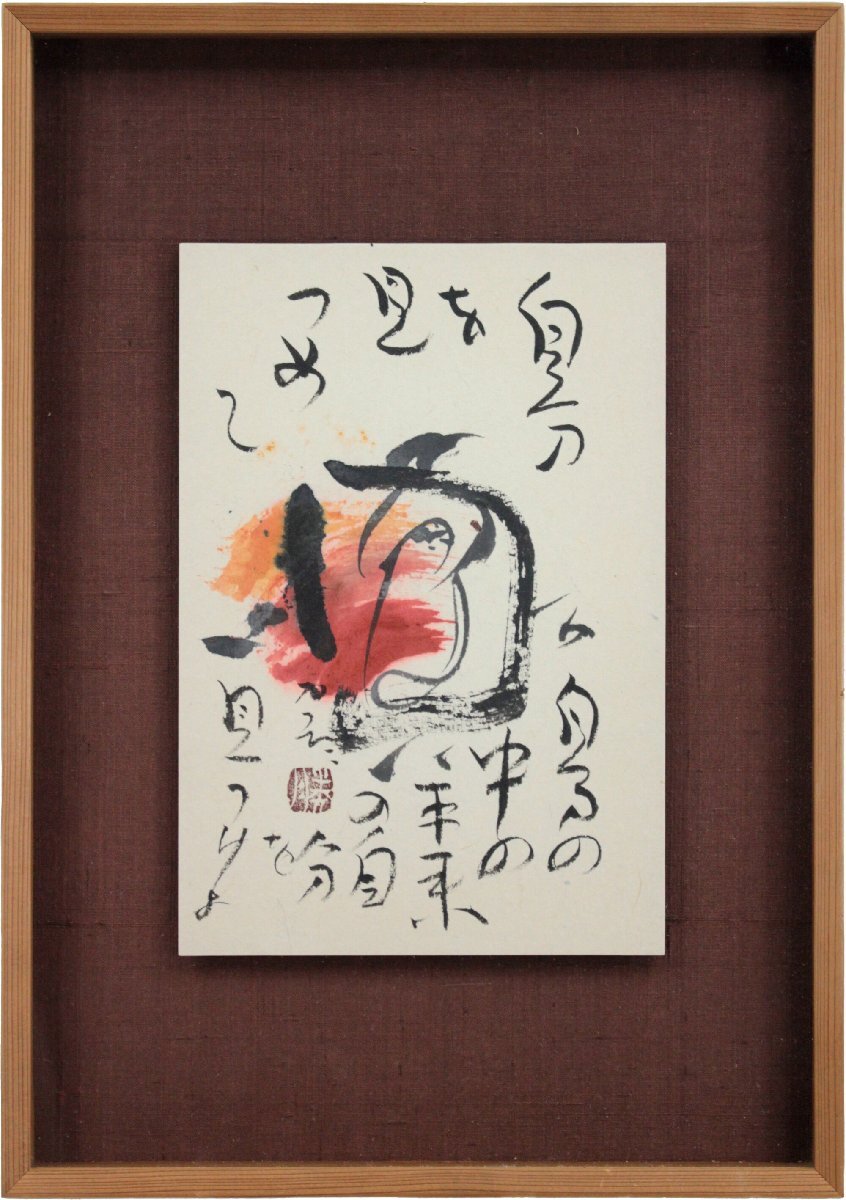 自分
を
見
つめ
て
自分の
中の
本来
の自
分
を
見つけよ